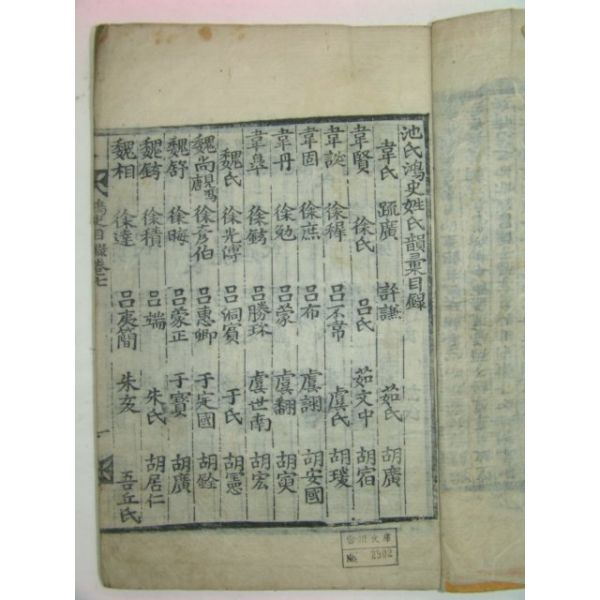 池氏鴻史姓氏韻彙目錄
韋氏 疏廣 許謙 茹氏 胡廣
韋賢 徐氏 呂氏 茹文中 胡宿
韋誕 徐穉 呂不 虞氏 胡瑗
韋固 徐庶 呂布 虞詡 胡安國
韋丹 徐勉 呂蒙 虞翻 胡寅
韋皐 徐 呂勝 虞世南 胡宏
魏氏 徐光溥 呂洞賓 于氏 胡憲
魏尚 徐彦伯 呂惠卿 于定國 胡銓
魏舒 徐晦 呂蒙正 于寶 胡廣
魏錡 徐積 呂端 朱氏 胡居仁
魏相 徐達 呂夷簡 朱亥 吾丘氏
鴻史目錄卷七 一
文庫
№ 2502